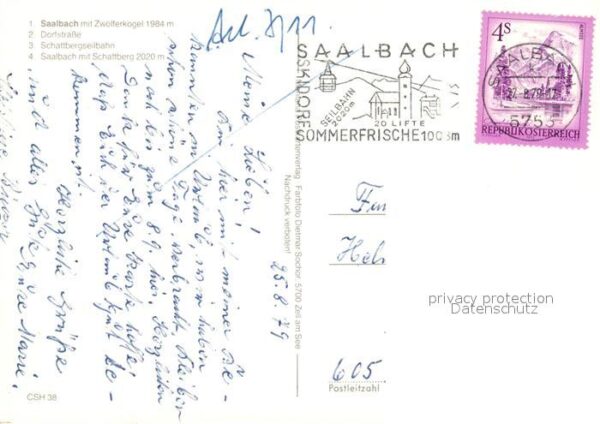 Art. 8/11
1. Saalbach mit Zwölferkogel 1984 m
2. Dorfstraße
3. Schattbergseilbahn
4. Saalbach mit Schattberg 2020 m
25.8.79
Meine Lieben!
Bin hier mit meiner Be-
kannten im Urlaub, wir haben
schon schöne Tage verbracht, bleiben
noch bis zum 8.9. hier. Herzlichen
Dank für Eure Karte hoffe
Euch der Urlaub gut be-
kommen ist.
Herzliche Grüße
und alles Gute
Eure Marie.
CSH 38
Farbfoto Dietmar Sochor, 5700 Zell am See
Nachdruck verboten!
SAALBACH
SKIDORF
SEILBAHN
2020m
20 LIFTE
SOMMERFRISCHE 1003m
4S
REPUBLIK ÖSTERREICH
SAALBACH
5753
605
Postleitzahl
privacy protection
Datenschutz